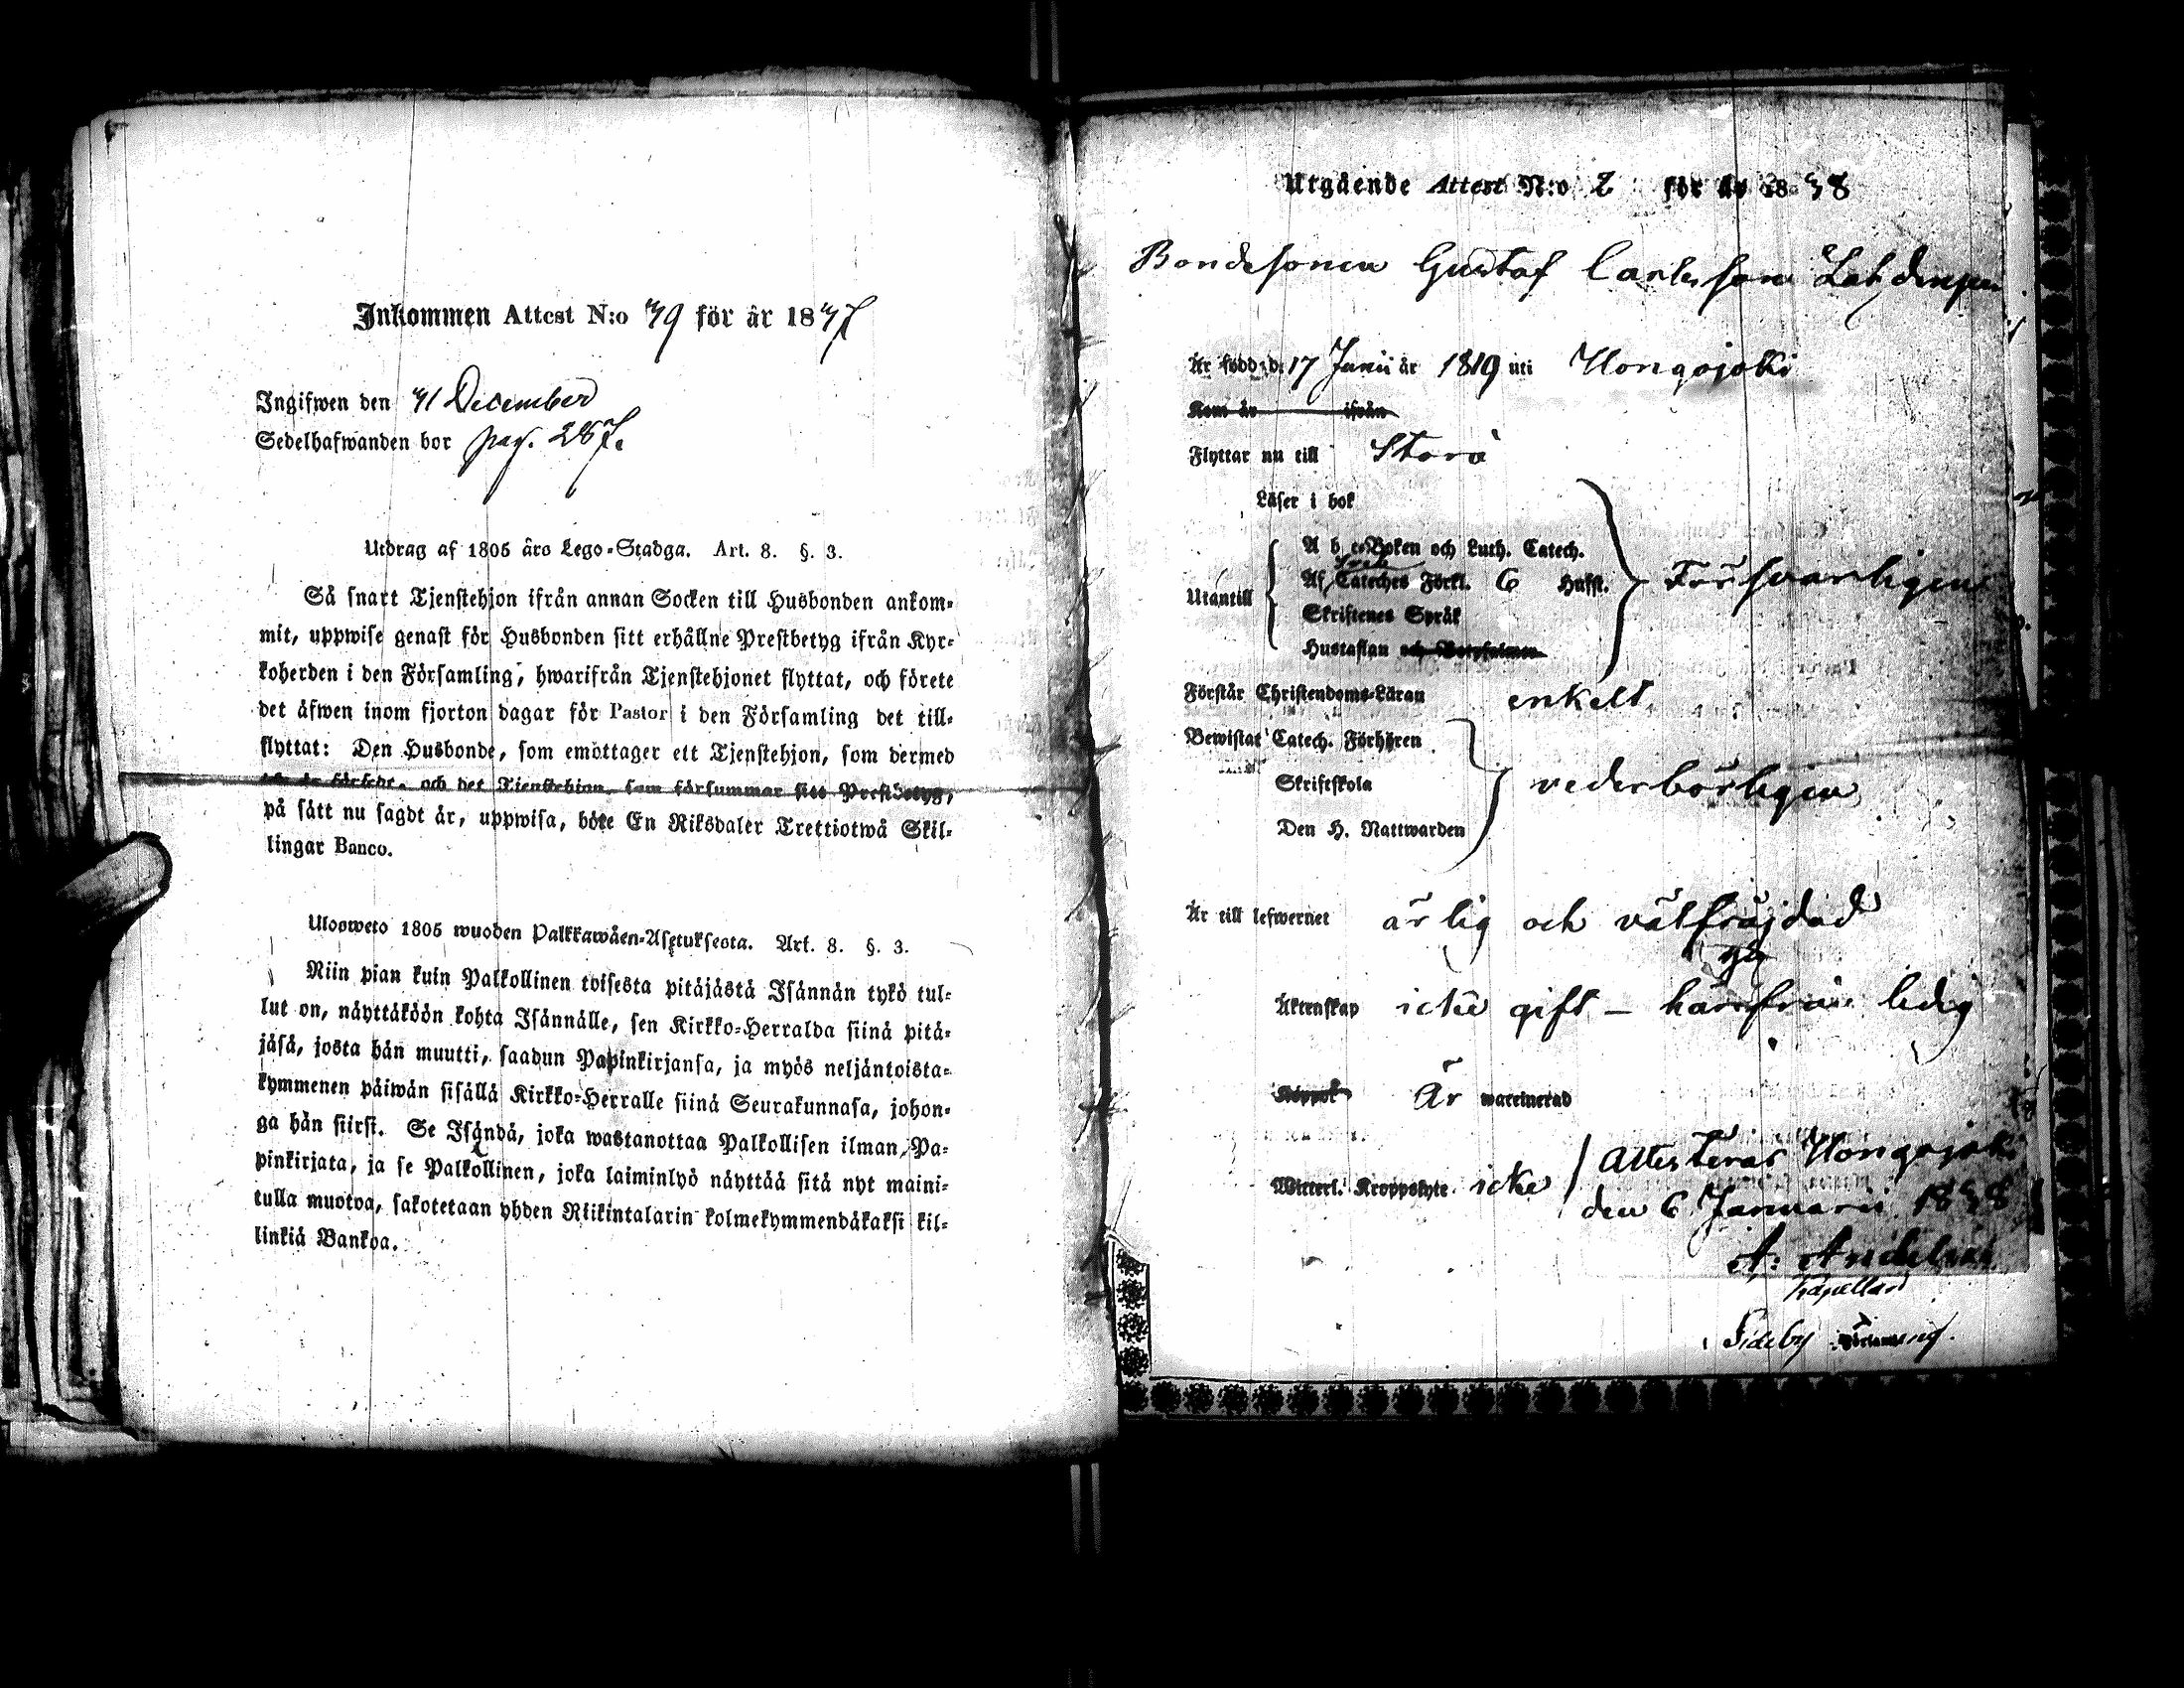 Inkommen Attest N:o 39 för år 1837
Ingifwen den 31 December
Sedelhafwanden bor pag. 287.
Utdrag af 1805 års Lego-Stadga. Art. 8. §. 3.
Så snart Tjenstehjon ifrån annan Socken till Husbonden ankom-
mit, uppwise genast för Husbonden sitt erhållne Prestbetyg ifrån Kyr-
koherden i den Församling, hwarifrån Tjenstehjonet flyttat, och förete
det äfwen inom fjorton dagar för Pastor i den Församling det till-
flyttat: Den Husbonde, som emottager ett Tjenstehjon, som dermed
är försedt, och det Tjenstehjon, som försummar sitt Prestbetyg,
på sätt nu sagdt är, uppwisa, böte En Riksdaler Trettiotwå Skil-
lingar Banco.
Ulosweto 1805 wuoden Palkkawäen-Asetuksesta. Art. 8. §. 3.
Niin pian kuin Palkollinen toisesta pitäjästä Isännän tykö tul-
lut on, näyttäköön kohta Isännälle, sen Kirkko-Herralda siinä pitä-
jäsä, josta hän muutti, saadun Papinkirjansa, ja myös neljäntoista-
kymmenen päiwän sisällä Kirkko-Herralle siinä Seurakunnasa, johon-
ga hän siirsi. Se Isändä, joka wastanottaa Palkollisen ilman Pa-
pinkirjata, ja se Palkollinen, joka laiminlyö näyttää sitä nyt maini-
tulla muotoa, sakotetaan yhden Riikintalarin kolmekymmendäkaksi kil-
linkiä Bankoa.
Utgående Attest N:o 2 för år 1838
Bondesonen Gustaf Carlsson
Är född d. 17 Junii år 1819 uti Hongojoki
Kom år ifrån
Flyttar nu till Storå
Läser i bok
A b c-Boken och Luth. Catech.
Af Cateches Förkl. 6 Hufst.
Utantill
Försvarligen
Skriftenes Språk
Hustaflan och Botpsalmen
Förstår Christendoms-Läran enkelt
Bewistat Catech. Förhören
Skriftskola
vederbörligen
Den H. Nattwarden
Är till lefwernet ärlig och välfräjdad
Äktenskap icke gift - härifrån ledig
Koppor Är waccinerad
Witterl. Kroppslyte icke
Attesteras Hongojoki
den 6 Januarii 1838
A.
Kapellan
Sideby Församling.